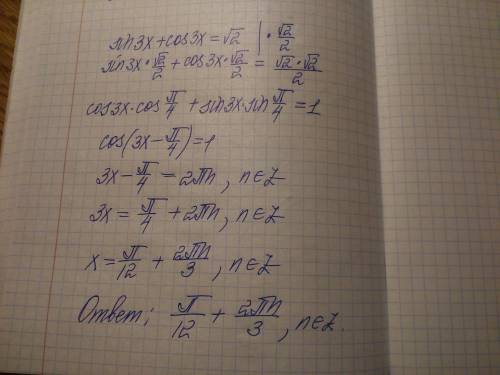 sin3x + cos3x = √2 | · √2/2
sin3x · √2/2 + cos3x · √2/2 = √2·√2/2
cos3x · cos π/4 + sin3x · sin π/4 = 1
cos(3x − π/4) = 1
3x − π/4 = 2πn, n∈Z
3x = π/4 + 2πn, n∈Z
x = π/12 + 2πn/3, n∈Z
Ответ: π/12 + 2πn/3, n∈Z.